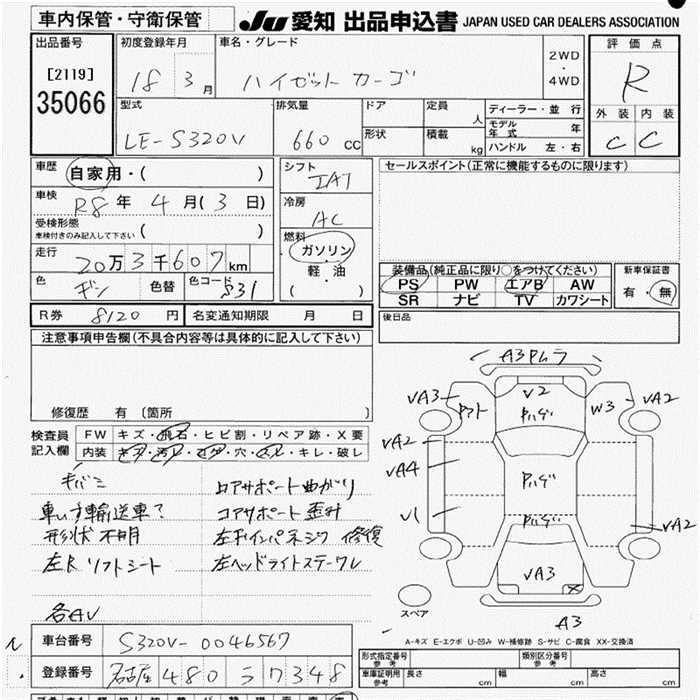 車内保管・守衛保管
JU 愛知 出品申込書 JAPAN USED CAR DEALERS ASSOCIATION
出品番号
[2119]
35066
初度登録年月
18 3月
車名・グレード
ハイゼット カーゴ
2WD
・
4WD
評価点
R
外装 内装
C C
型式
LE-S320V
排気量
660 cc
ドア
形状
定員 人
積載 kg
ディーラー・並行
モデル年式 年
ハンドル 左・右
車歴
自家用・( )
車検
R8年 4月(3日)
受検形態
車検付きのみ記入して下さい ( )
走行
20万3千607km
色
ギン
色替
色コード
S31
シフト
IAT
冷房
AC
燃料
ガソリン
軽・油
( )
セールスポイント(正常に機能するものに限ります)
装備品(純正品に限り○をつけてください)
PS PW エアB AW
SR ナビ TV カワシート
新車保証書
有・無
R券 8120円
名変通知期限 月 日
後日品
注意事項申告欄(不具合内容等は具体的に記入して下さい)
修復歴 有 〔箇所 〕
検査員記入欄
FW キズ・飛石・ヒビ割・リペア跡・X要
内装 キズ・汚れ・コゲ・穴・スレ・キレ・破レ
キバミ
車いす輸送車?
形状不明
左R リフトシート
各AV
ロアサポート曲がり
コアサポート歪み
左Fインパネジク 修復
左ヘッドライトステーワレ
A3Pムラ
VA3
V2
W3
VA2
Pハゲ
VA2
VA4
Pハゲ
V1
Pハゲ
VA2
VA3
X
A3
スペア
A-キズ E-エクボ U-凹み W-補修跡 S-サビ C-腐食 XX-交換済
車台番号
S320V-0046567
登録番号
名古屋 480 ラ 7348
形式指定番号
参考
類別区分番号
参考
車庫証明用
参考
長さ cm
幅 cm
高さ cm